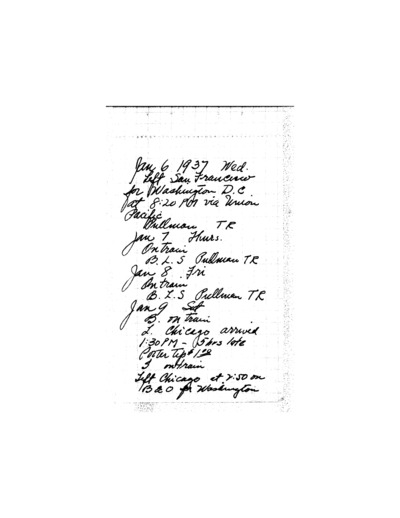 Jan 6 1937 Wed.
Left San Francisco
for Washington D.C.
at 8:20 PM via Union
Pacific
Pullman TR
Jan 7 Thurs.
On train
B. L. S Pullman TR
Jan 8 Fri
On train
B. L. S Pullman TR
Jan 9 Sat
B. on train
L. Chicago arrived
1:30 PM - 5 hrs late
Porter Tip $1.00
S on train
Left Chicago at on
B & O for Washington